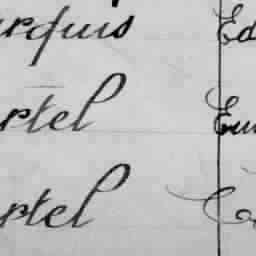 arquis Ed
rtel Eu
rtel Co